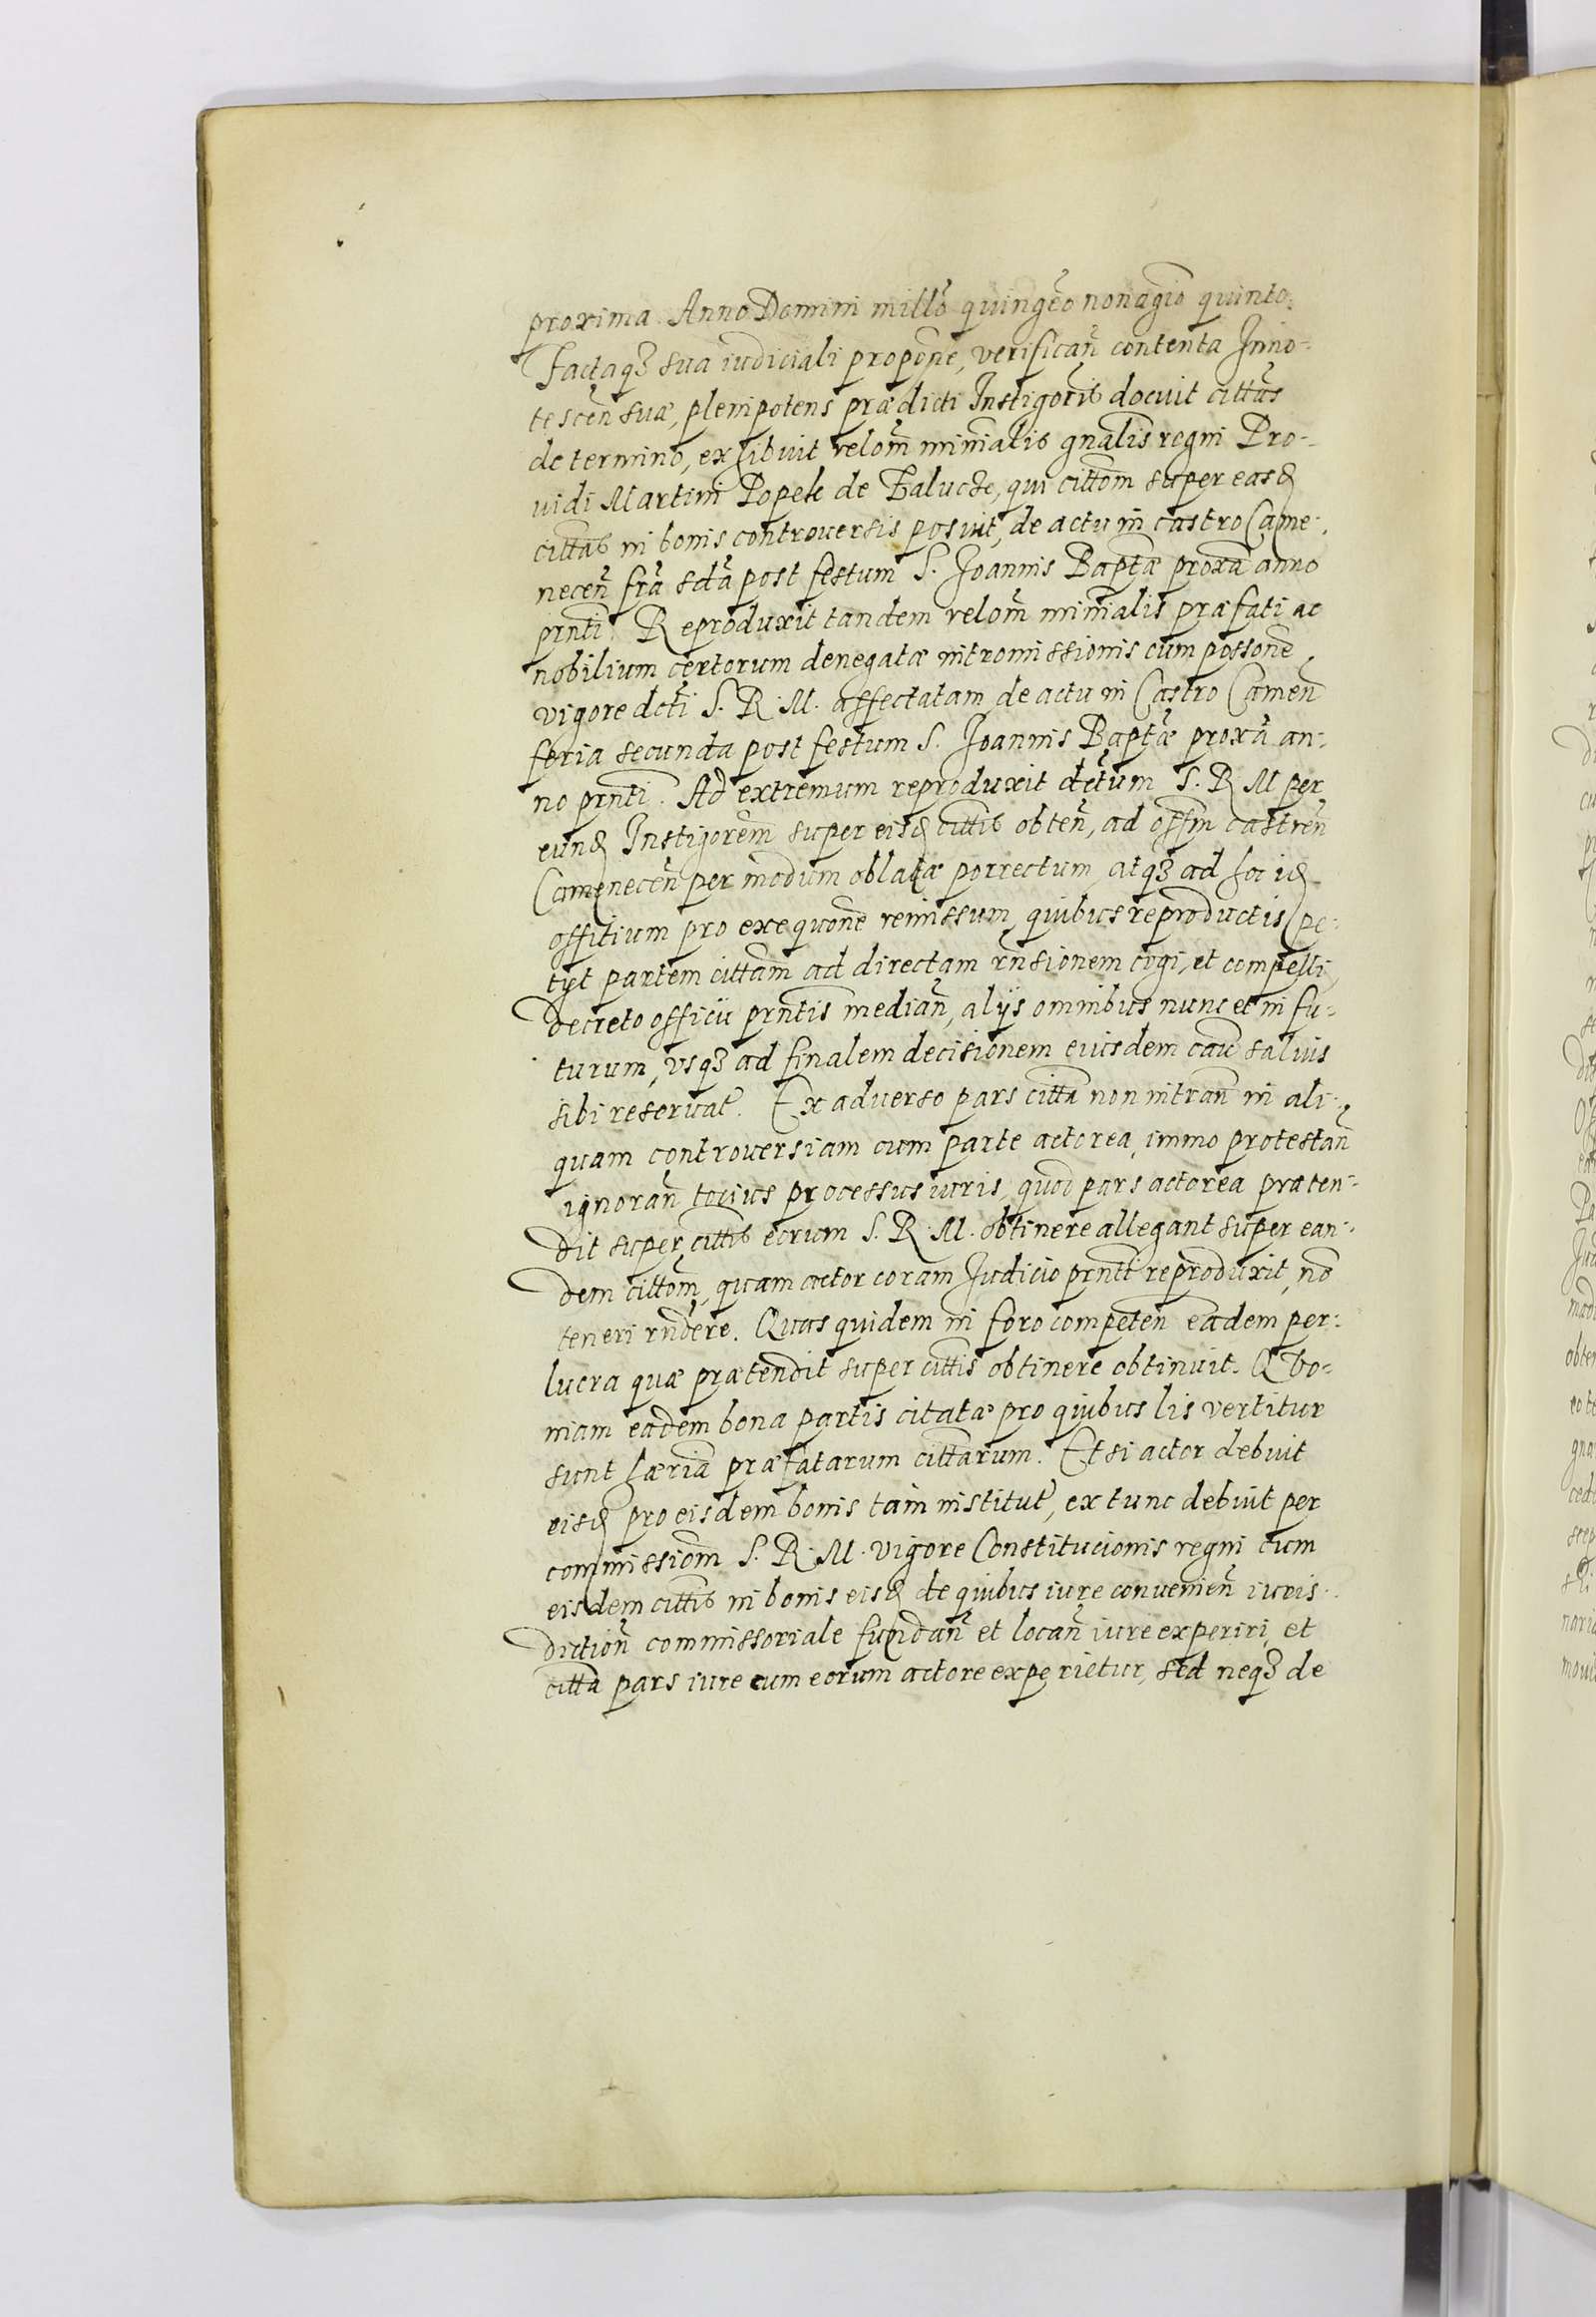 proxima. Anno Domini millõ quingẽo nonagiõ quinto.
Factaq3 sua iudiciali propõne, verificañ contenta Inno-
tesceñ suæ, plenipotens prædicti Instigoris docuit cittũs
de termino, exhibuit relom minialis gnalis regni Pro-
uidi Martini Popek de, qui cittom super easd
cittas in bonis controuersis posuit, de actu in castro Came-
neceñ fra scda post festum S. Joannis Baptæ proxã anno
prnti. Reproduxit tandem relom minialis præfati ac
nobilium certorum denegatæ intromissionis cum possone
vigore dcti S. R. M. affectatam, de actu in Castro Cameñ
feria secunda post festum S. Joannis Baptæ proxã an-
no prnti. Ad extremum reproduxit dctum S. R M per
eund Instigorem super eisd cittis obteñ, ad offm castreñ
Cameneceñ per modum oblatæ porrectum, atq3 ad hoc id
offitium pro exequone remissum, quibus reproductis pe-
tyt partem cittam ad directam rnsionem cogi, et compelli
decreto officii prntis mediañ, alys omnibus nunc et in fu-
turum, usq3 ad finalem decisionem eiusdem cau saluis
sibi reseruat. Ex aduerso pars citta non intrañ in ali-
quam controuersiam cum parte actorea, immo protestañ
ignorañ tocius processus iuris, quod pars actorea præten-
dit super cittis eorum S. R. M. obtinere allegant super ean-
dem cittom, quam actor coram Judicio prnti reproduxit, nõ
teneri rndere. Quas quidem in foro competeñ eadem per-
lucra quæ prætendit super cittis obtinere obtinuit. Quo-
niam eadem bona partis citatæ pro quibus lis vertitur
sunt hæria præfatarum cittarum. Et si actor debuit
eisd pro eisdem bonis tam institut, ex tunc debuit per
commissiom S. R. M. vigore Constitucionis regni cum
eisdem cittis in bonis eisd de quibus iure conuenieñ iuris-
dictioñ commissoriale fundañ et locañ iure experiri, et
citta pars iure cum eorum actore experietur, sed neq3 de